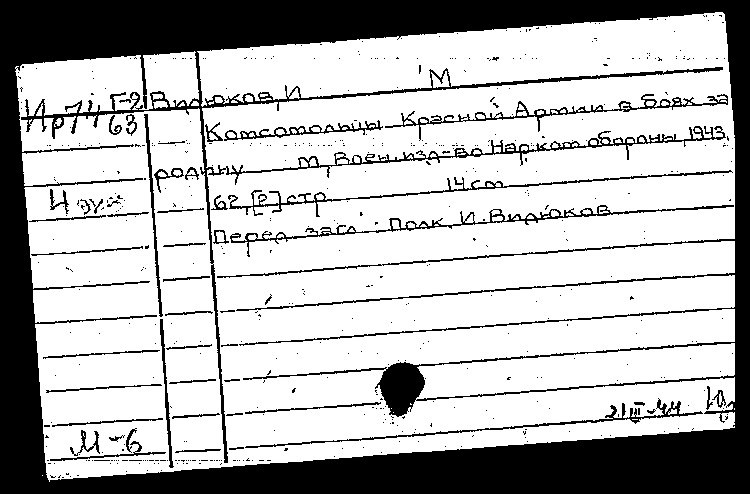 Ир74 Г-2 63
Видюков, И М
Комсомольцы Красной Армии в боях за
родину М, Воен. изд-во Нар. ком. обороны, 1943.
4 экз
62, [2] стр 14 cm
Перед загл: Полк. И. Видюков
21 III-44
М-6